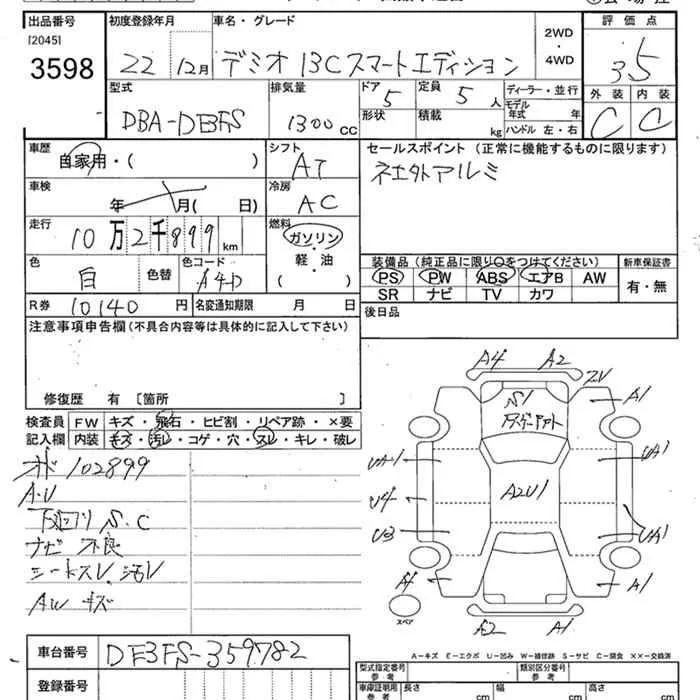 出品番号 初度登録年月 車名・グレード 2WD ・ 4WD 評価点
[2045]
3598 22 12月 デミオ 13C スマートエディション 3.5
型式 排気量 ドア 5 定員 5 人 ディーラー・並行 外装 内装
DBA-DE3FS 1300 CC 形状 積載 kg モデル年式 年 C C
ハンドル 左・右
車歴 シフト セールスポイント(正常に機能するものに限ります)
自家用・( ) AT 社外アルミ
車検 年 月( 日) 冷房 AC
走行 10万2千899 km 燃料 ガソリン・軽・油 ( )
装備品(純正品に限り○をつけてください) 新車保証書
色 白 色替 色コード A4D PS PW ABS エアB AW 有・無
SR ナビ TV カワ
R券 10140 円 名変通知期限 月 日 後日品
注意事項申告欄(不具合内容等は具体的に記入して下さい)
修復歴 有 〔箇所 〕
検査員 FW キズ・飛石・ヒビ割・リペア跡・×要
記入欄 内装 キズ・汚レ・コゲ・穴・スレ・キレ・破レ
A4 A2
A1
S1
UA1 UA1
オド102899
A2U1
U4
A・U
下回りS.C
U3 UA1
ナビ不良
シートスレ.汚レ
A4 A1
AWキズ
スペア
A2 A1
A-キズ E-エクボ U-凹み W-補修跡 S-サビ C-腐食 XX-交換済
車台番号 DE3FS-359782
型式指定番号 参考 類別区分番号 参考
登録番号
車庫証明用 参考 長さ cm 幅 cm 高さ cm